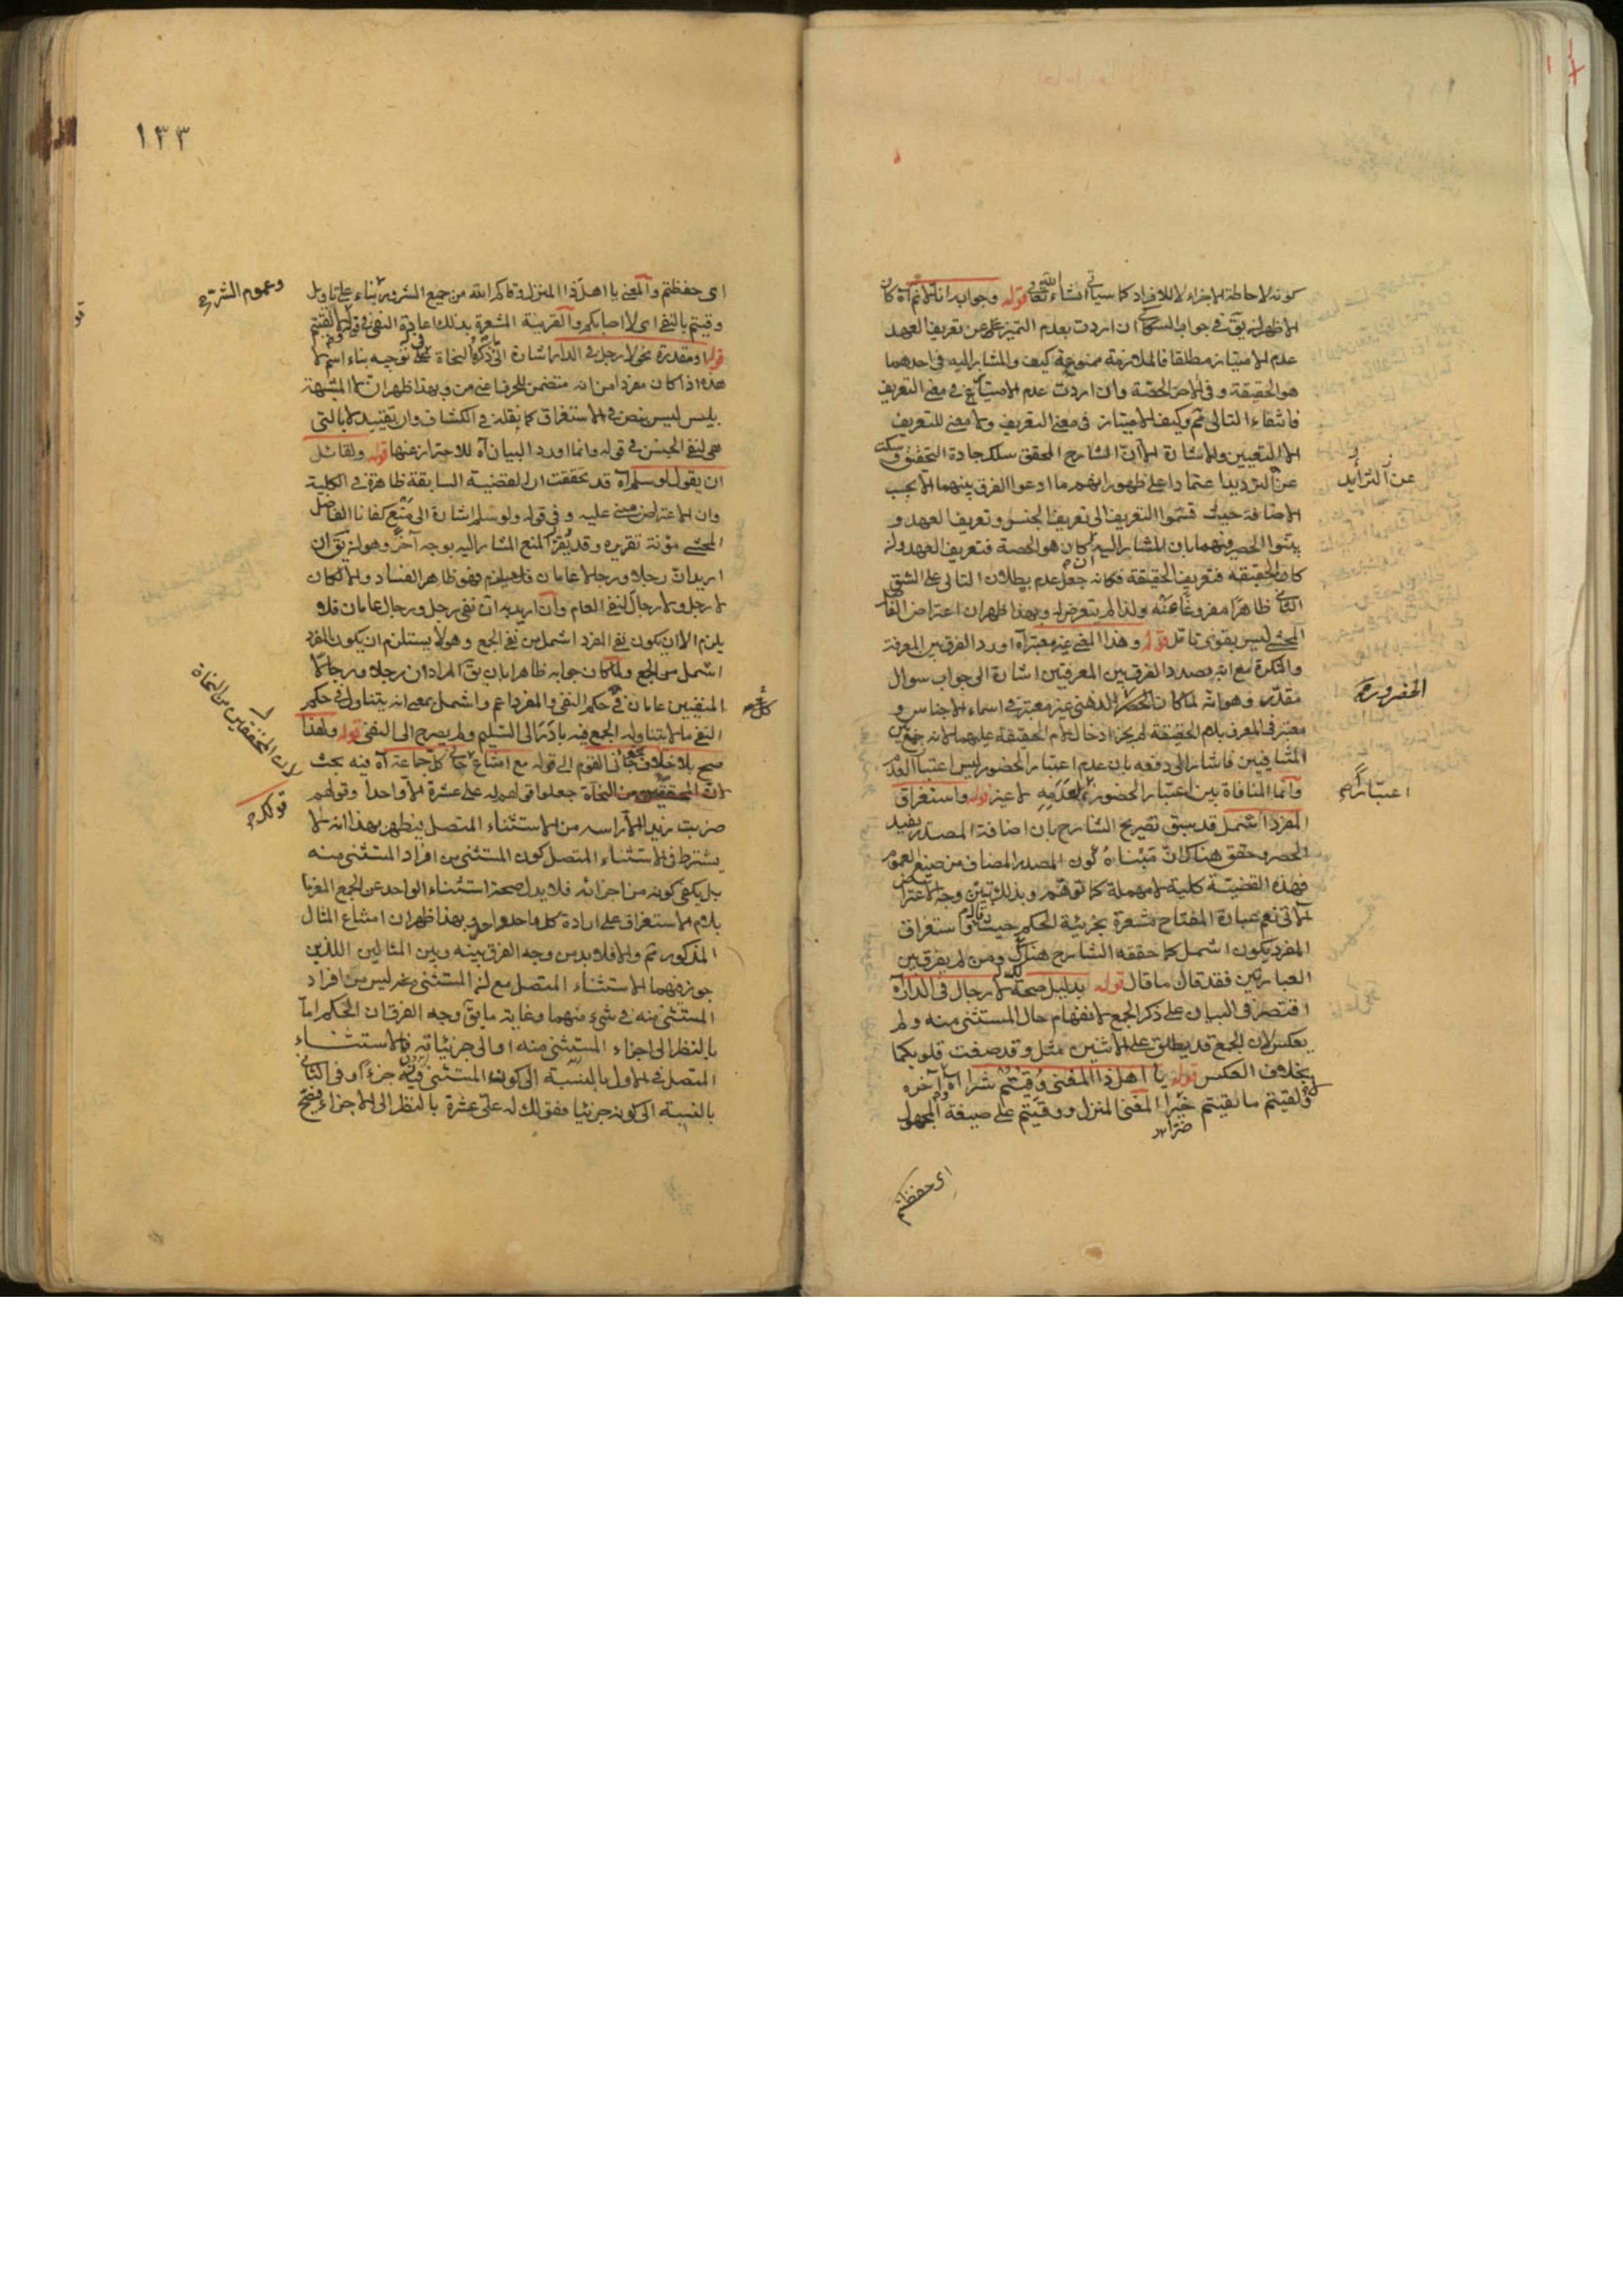 كونه لاحاطة الاجزاء لا للافراد كما سيأتي انشاء الله تعالى قوله وجوابه انا لا نم آه كان
الاظهر ان يق في جواب السكاكي ان اردت بعدم التميز عن تعريف العهد
عدم الامتياز مطلقا فالملازمة ممنوعة كيف والمشار اليه في احدهما
هو الحقيقة وفي الاخر الحصة وان اردت عدم الامتياز في معنى التعريف
فانتفاء التالى مم وكيف الامتياز في معنى التعريف ولا معنى للتعريف
الا التعيين والاشارة الا ان الشارح المحقق سلك جادة التحقيق وسكت
عن الترديد اعتمادا على ظهوره انهم ما ادعوا الفرق بينهما الا بحسب
الاضافة حيث قسموا التعريف الى تعريف الجنس وتعريف العهد و
بينوا الحصر فيهما بان المشار اليه ان كان هو الحصة فتعريف العهد وان
كان الحقيقة فتعريف الحقيقة فكانه جعل عدم بطلان التالى على الشق
الثانى ظاهرا مفروغا عنه ولذا لم يتعرض له وبهذا ظهر ان اعتراض الفاضل
المحشى ليس بقوى تأمل قوله وهذا المعنى غير معتبر آه اورد الفرق بين المعرفة
والنكرة مع انه بصدد الفرق بين المعرفتين اشارة الى جواب سؤال
مقدر وهو انه لما كان الحضور الذهنى غير معتبر في اسماء الاجناس و
معتبر في المعرف بلام الحقيقة لم يجز ادخال لام الحقيقة عليها لانه جمع بين
المتنافيين فاشار الى دفعه بان عدم اعتبار الحضور ليس اعتبار العدم
وانما المنافاة بين اعتبار الحضور واعتبار عدمه لا غير قوله واستغراق
المفرد اشمل قد سبق تصريح الشارح بان اضافة المصدر يفيد
الحصر وحقق هناك ان مبناه كون المصدر المضاف من صيغ العموم
فهذه القضية كلية لا مهملة كما توهم وبذلك تبين وجه الاعتراض
الآتى نعم عبارة المفتاح مشعرة بجزئية الحكم حيث قال واستغراق
المفرد يكون اشمل كما حققه الشارح هناك ومن لم يفرق بين
العبارتين فقد قال ما قال قوله بدليل صحة لا رجال في الدار آه
اقتصر في البيان على ذكر الجمع لانفهام حال المستثنى منه ولم
يعكس لان الجمع قد يطلق على الاثنين مثل وقد صغت قلوبكما
بخلاف العكس قوله يا اهل ذا المغنى وقيتم شرا آه وآخره
ولقيتم ما بقيتم خيرا المغنى المنزل ووقيتم على صيغة المجهول
ضرا
اى حفظتم
عن الترديد
الحضور
اعتبار
١٣٣
اى حفظتم والمعنى يا اهل ذا المنزل وقاكم الله من جميع الشرور بناء على تأويل
وقيتم بالنفى اى لا اصابكم والقرينة المشعرة بذلك اعادة النفى في قوله ولا لقيتم
قوله او مقدرة نحو لا رجل في الدار اشارة الى ما ذكره النحاة في توجيه بناء اسم لا
هذه اذا كان مفردا من انه متضمن للحرف اعنى من وبهذا ظهر ان لا المشبهة
بليس ليس بنص في الاستغراق كما نقله في الكشاف وان تقييد لا بالتى
هى لنفى الجنس في قوله وانما اورد البيان آه للاحتراز عنها قوله ولقائل
ان يقول لو سلم آه قد تحققت ان القضية السابقة ظاهرة في الكلية
وان الاعتراض مبنى عليه وفي قوله ولو سلم اشارة الى منع كفانا الفاضل
المحشى مؤنة تقريره وقد يقرر المنع المشار اليه بوجه آخر وهو ان يق ان
اريد ان رجلا ورجالا عامان فلا يلزم فهو ظاهر الفساد والا لكان
لا رجل ولا رجال لنفى العام وان اريد به ان نفى رجل ورجال عامان فلا
يلزم الا ان يكون نفى المفرد اشمل من نفى الجمع وهو لا يستلزم ان يكون المفرد
اشمل من الجمع ولما كان جوابه ظاهرا بان يق المراد ان رجلا ورجالا
المنفيين عامان في حكم النفى والمفرد اعم واشمل بمعنى انه يتناول في حكم
النفى ما لا يتناوله الجمع فيه بادر الى التسليم ولم يصرح الى النفى قوله ولهذا
صح بلا خلاف جاءنى القوم الى قوله مع امتناع جاءنى كل جماعة آه فيه بحث
لان المحققين من النحاة جعلوا قولهم له على عشرة الا واحدا وقولهم
ضربت زيدا الا رأسه من الاستثناء المتصل فظهر بهذا انه لا
يشترط في الاستثناء المتصل كون المستثنى من افراد المستثنى منه
بل يكفى كونه من اجزائه فلا يدل صحة استثناء الواحد عن الجمع المعرف
بلام الاستغراق على ارادة كل واحد واحد وبهذا ظهر ان امتناع المثال
المذكور مم والا فلا بد من وجه الفرق بينه وبين المثالين اللذين
جوز فيهما الاستثناء المتصل مع ان المستثنى فيه ليس من افراد
المستثنى منه في شئ منهما وغاية ما يق وجه الفرق ان الحكم اما
بالنظر الى اجزاء المستثنى منه او الى جزئياته فالاستثناء
المتصل في الاول بالنسبة الى كون المستثنى فيه جزءا وفي الثانى
بالنسبة الى كونه جزئيا ففى قولك له على عشرة بالنظر الى الاجزاء فيصح
وعموم الشر
لان المحققين من النحاة
قولك